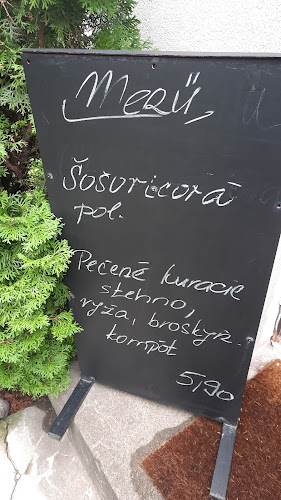 Menü
Šošovicová
pol.
Pečené kuracie
stehno,
ryža, broskyň.
kompót
5,90